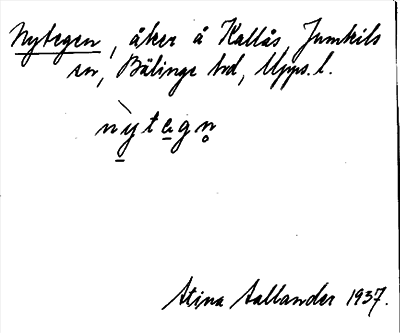 Nytegen, åker å Kallås, Jumkils
sn, Bälinge hd, Upps. l.
nỳtegn̥
Stina Sallander 1937.